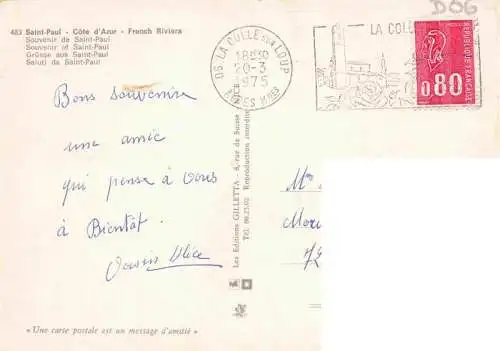 D06
483 Saint-Paul - Côte d'Azur - French Riviera
Souvenir de Saint-Paul
Souvenir of Saint-Paul
Grüsse aus Saint-Paul
Saluti da Saint-Paul
06-LA COLLE SUR LOUP
18H30
20-3
1975
ALPES MMES
LA COLL
RÉPUBLIQUE FRANÇAISE
0,80
Bons souvenirs
une amie
qui pense à vous
à Bientôt.
Alice
Les Editions GILLETTA - 8, rue de Suisse - NICE
Tél. 88.25.02 Reproduction interdite
Mme
72
«Une carte postale est un message d'amitié»